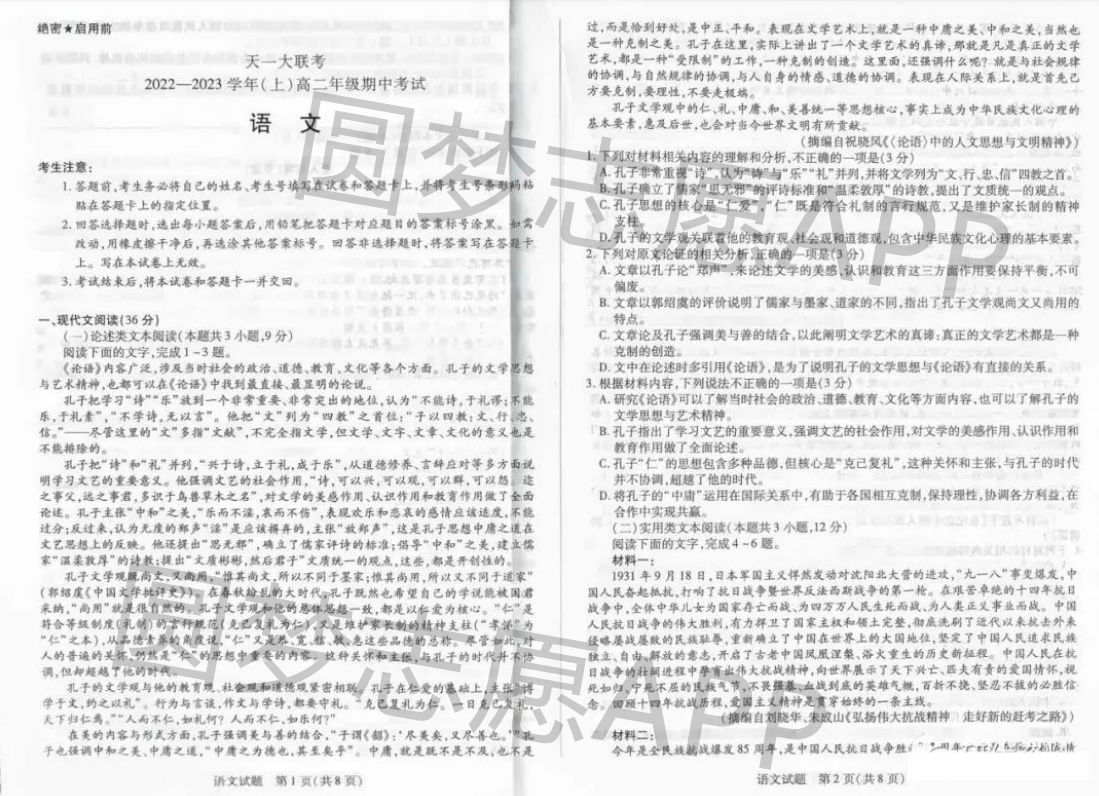 绝密★启用前
天一大联考
2022—2023学年(上)高二年级期中考试
语 文
考生注意:
1.答题前,考生务必将自己的姓名、考生号填写在试卷和答题卡上,并将考生号条形码粘
贴在答题卡上的指定位置。
2.回答选择题时,选出每小题答案后,用铅笔把答题卡对应题目的答案标号涂黑。如需
改动,用橡皮擦干净后,再选涂其他答案标号。回答非选择题时,将答案写在答题卡
上。写在本试卷上无效。
3.考试结束后,将本试卷和答题卡一并交回。
一、现代文阅读(36分)
(一)论述类文本阅读(本题共3小题,9分)
阅读下面的文字,完成1~3题。
《论语》内容广泛,涉及当时社会的政治、道德、教育、文化等各个方面。孔子的文学思想
与艺术精神,也都可以在《论语》中找到最直接、最显明的论说。
孔子把学习“诗”“乐”放到一个非常重要、非常突出的地位,认为“不能诗,于礼谬;不能
乐,于礼素”,“不学诗,无以言”。他把“文”列为“四教”之首位:“子以四教:文、行、忠、
信。”——尽管这里的“文”多指“文献”,不完全指文学,但文学、文字、文章、文化的意义也是
不能排除的。
孔子把“诗”和“礼”并列,“兴于诗,立于礼,成于乐”,从道德修养、言辞应对等多方面说
明学习文艺的重要意义。他强调文艺的社会作用,“诗,可以兴,可以观,可以群,可以怨。迩
之事父,远之事君,多识于鸟兽草木之名”,对文学的美感作用、认识作用和教育作用做了全面
论述。孔子主张“中和”之美,“乐而不淫,哀而不伤”,表现欢乐和悲哀的感情应该适度,不能
过分;反过来,认为无度的郑声“淫”是应该摒弃的,主张“放郑声”,这是孔子思想中庸之道在
文艺思想上的反映。他还提出“思无邪”,确立了儒家评诗的标准;倡导“中和”之美,建立儒
家“温柔敦厚”的诗教;提出“文质彬彬,然后君子”文质统一的观点,这些,都是开创性的。
孔子文学观既尚文,又尚用,“惟其尚文,所以不同于墨家;惟其尚用,所以又不同于道家”
(郭绍虞《中国文学批评史》)。在春秋纷乱的大时代,孔子既然也希望自己的学说能被国君
采纳,“尚用”就是很自然的。孔子文学观和他的总体思想一致,都是以仁爱为核心。“仁”是
符合等级制度(礼制)的言行规范(克己复礼为仁),又是维护家长制的精神支柱(“孝悌”为
“仁”之本),从品德素养的角度说,“仁”又是恭、宽、信、敏、惠这些品德的总称。尽管如此,对
人的普遍的关怀,仍然是“仁”的思想中重要的内容。这种关怀和主张,与孔子的时代并不协
调,但却超越了他的时代。
孔子的文学观与他的教育观、社会观和道德观紧密相联。孔子在仁爱的基础上,主张“博
学于文,约之以礼”。行为与言谈,作文与学诗,都要守礼。“克己复礼为仁。一日克己复礼,
天下归仁焉。”“人而不仁,如礼何?人而不仁,如乐何?”
在美的内容与形式方面,孔子强调美与善的结合,“子谓《韶》:‘尽美矣,又尽善也。’”孔
子也强调中和之美、中庸之道,“中庸之为德也,其至矣乎”。中庸,就是既不是不及,也不是
语文试题 第1页(共8页)
过,而是恰到好处,是中正、平和。表现在文学艺术上,就是一种中庸之美、中和之美,当然也
是一种克制之美。孔子在这里,实际上讲出了一个文学艺术的真谛,那就是凡是真正的文学
艺术,都是一种“受限制”的工作,一种克制的创造。这里面,还强调什么呢?就是与社会规律
的协调,与自然规律的协调,与人自身的情感、道德的协调。表现在人际关系上,就是首先己
方要克制,要理性,不要走极端。
孔子文学观中的仁、礼、中庸、和、美善统一等思想核心,事实上成为中华民族文化心理的
基本要素,惠及后世,也会对当今世界文明有所贡献。
(摘编自祝晓风《〈论语〉中的人文思想与文明精神》)
1.下列对材料相关内容的理解和分析,不正确的一项是(3分)
A.孔子非常重视“诗”,认为“诗”与“乐”“礼”并列,并将文学列为“文、行、忠、信”四教之首。
B.孔子确立了儒家“思无邪”的评诗标准和“温柔敦厚”的诗教,提出了文质统一的观点。
C.孔子思想的核心是“仁爱”。“仁”既是符合礼制的言行规范,又是维护家长制的精神
支柱。
D.孔子的文学观关联着他的教育观、社会观和道德观,包含中华民族文化心理的基本要素。
2.下列对原文论证的相关分析,正确的一项是(3分)
A.文章以孔子论“郑声”,来论述文学的美感、认识和教育这三方面作用要保持平衡,不可
偏废。
B.文章以郭绍虞的评价说明了儒家与墨家、道家的不同,指出了孔子文学观尚文又尚用的
特点。
C.文章论及孔子强调美与善的结合,以此阐明文学艺术的真谛:真正的文学艺术都是一种
克制的创造。
D.文中在论述时多引用《论语》,是为了说明孔子的文学思想与《论语》有直接的关系。
3.根据材料内容,下列说法不正确的一项是(3分)
A.研究《论语》可以了解当时社会的政治、道德、教育、文化等方面内容,也可以了解孔子的
文学思想与艺术精神。
B.孔子指出了学习文艺的重要意义,强调文艺的社会作用,对文学的美感作用、认识作用和
教育作用做了全面论述。
C.孔子“仁”的思想包含多种品德,但核心是“克己复礼”,这种关怀和主张,与孔子的时代
并不协调,超越了他的时代。
D.将孔子的“中庸”运用在国际关系中,有助于各国相互克制,保持理性,协调各方利益,在
合作中实现共赢。
(二)实用类文本阅读(本题共3小题,12分)
阅读下面的文字,完成4~6题。
材料一:
1931年9月18日,日本军国主义悍然发动对沈阳北大营的进攻,“九一八”事变爆发,中
国人民奋起抵抗,打响了抗日战争暨世界反法西斯战争的第一枪。在艰苦卓绝的十四年抗日
战争中,全体中华儿女为国家存亡而战、为四万万人民生死而战、为人类正义事业而战。中国
人民抗日战争的伟大胜利,有力捍卫了国家主权和领土完整,彻底洗刷了近代以来抗击外来
侵略屡战屡败的民族耻辱,重新确立了中国在世界上的大国地位,坚定了中国人民追求民族
独立、自由、解放的意志,开启了古老中国凤凰涅槃、浴火重生的历史新征程。中国人民在抗
日战争的壮阔进程中孕育出伟大抗战精神,向世界展示了天下兴亡、匹夫有责的爱国情怀,视
死如归、宁死不屈的民族气节,不畏强暴、血战到底的英雄气概,百折不挠、坚忍不拔的必胜信
念。回顾十四年抗战历程,爱国主义精神是贯穿始终的一条主线。
(摘编自刘晓华、朱成山《弘扬伟大抗战精神 走好新的赶考之路》)
材料二:
今年是全民族抗战爆发85周年,是中国人民抗日战争胜
语文试题 第2页(共8页)
圆梦志愿APP
圆梦志愿APP